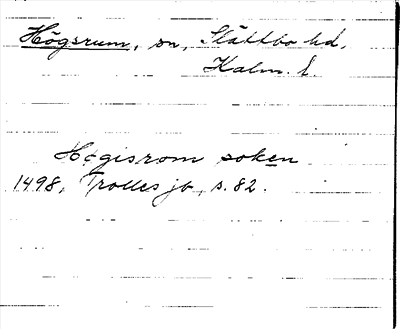 Högsrum, sn, Slättbo hd,
Kalm. l.
Høgisrom soken
1498, Trolles jb, s. 82.